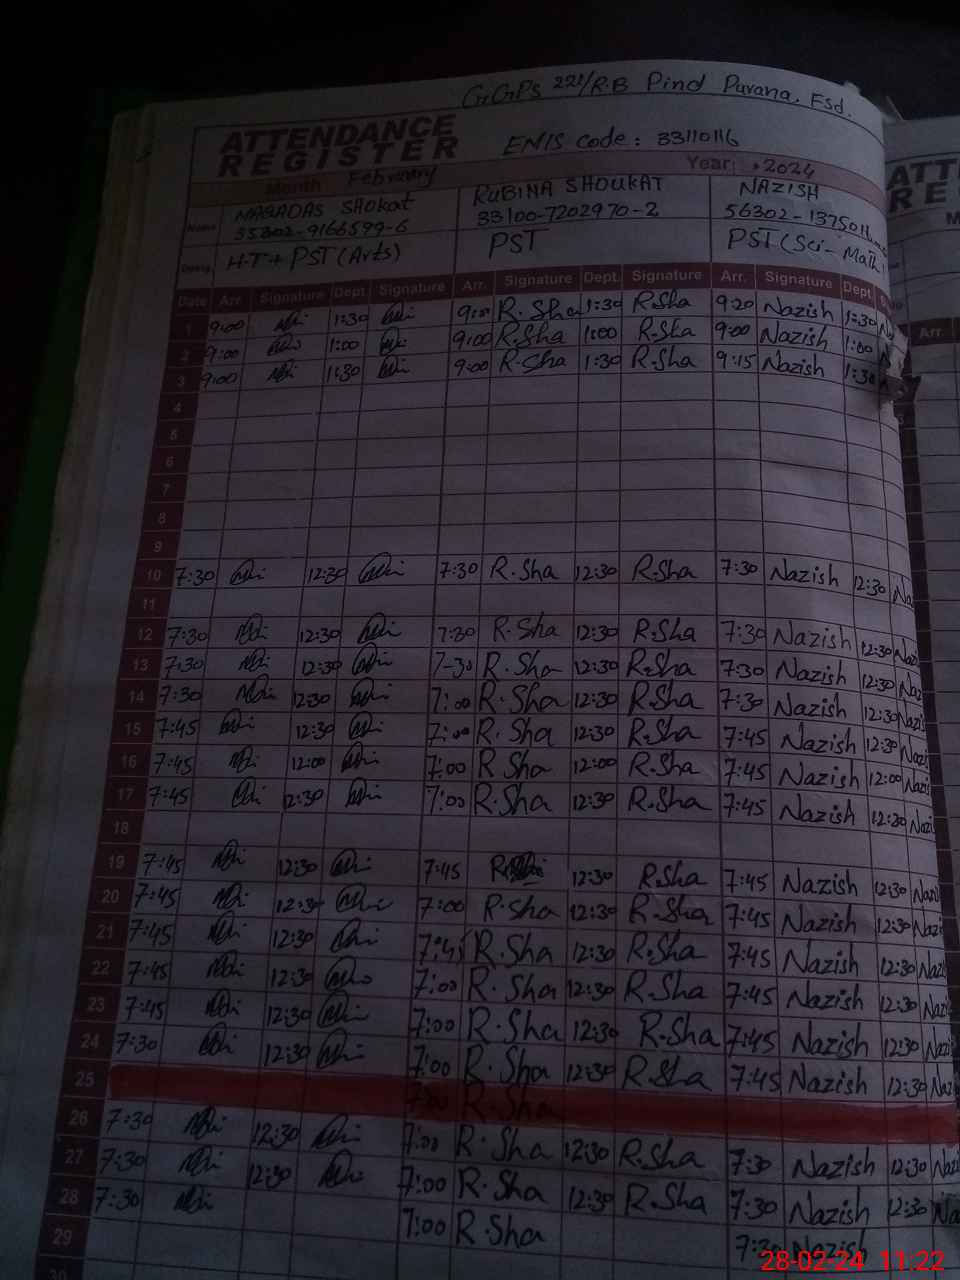 GGPS 221/R.B Pind Purana, Fsd.
ATTENDANCE
REGISTER
EMIS Code: 33110116
Month February Year: 2024
Name RUBINA SHOUKAT NAZISH
35302-9166599-6 33100-7202970-2
Desig. H.T+PST(Arts) PST PST(Sci-Math)
Date Arr. Signature Dept. Signature Arr. Signature Dept. Signature Arr. Signature Dept.
1 9:00 1:30 R.Sha 1:30 R.Sha 9:20 Nazish 1:30
2 9:00 1:00 9:00 R.Sha 1:00 R.Sha 9:00 Nazish 1:00
3 9:00 1:30 9:00 R.Sha 1:30 R.Sha 9:15 Nazish 1:30
4
5
6
7
8
9
10 7:30 12:30 7:30 R.Sha 12:30 R.Sha 7:30 Nazish 12:30
11
12 7:30 12:30 7:30 R.Sha 12:30 R.Sha 7:30 Nazish 12:30
13 7:30 12:30 7-30 R.Sha 12:30 R.Sha 7:30 Nazish 12:30
14 7:30 12:30 7:00 R.Sha 12:30 R.Sha 7:30 Nazish 12:30
15 7:45 12:30 7:00 R.Sha 12:30 R.Sha 7:45 Nazish 12:30
16 7:45 12:00 7:00 R Sha 12:00 R.Sha 7:45 Nazish 12:00
17 7:45 12:30 7:00 R.Sha 12:30 R.Sha 7:45 Nazish 12:30
18
19 7:45 12:30 7:45 12:30 R.Sha 7:45 Nazish 12:30
20 7:45 12:30 7:00 R.Sha 12:30 R.Sha 7:45 Nazish 12:30
21 7:45 12:30 7:45 R.Sha 12:30 R.Sha 7:45 Nazish 12:30
22 7:45 12:30 7:00 R.Sha 12:30 R.Sha 7:45 Nazish 12:30
23 7:45 12:30 7:00 R.Sha 12:30 R.Sha 7:45 Nazish 12:30
24 7:30 12:30 7:00 R.Sha 12:30 R.Sha 7:45 Nazish 12:30
25 7:00 R.Sha
26 7:30 12:30 7:00 R.Sha 12:30 R.Sha 7:30 Nazish 12:30
27 7:30 12:30 7:00 R.Sha 12:30 R.Sha 7:30 Nazish 12:30
28 7:30 7:00 R.Sha 7:30 Nazish
29
30
28-02-24 11:22